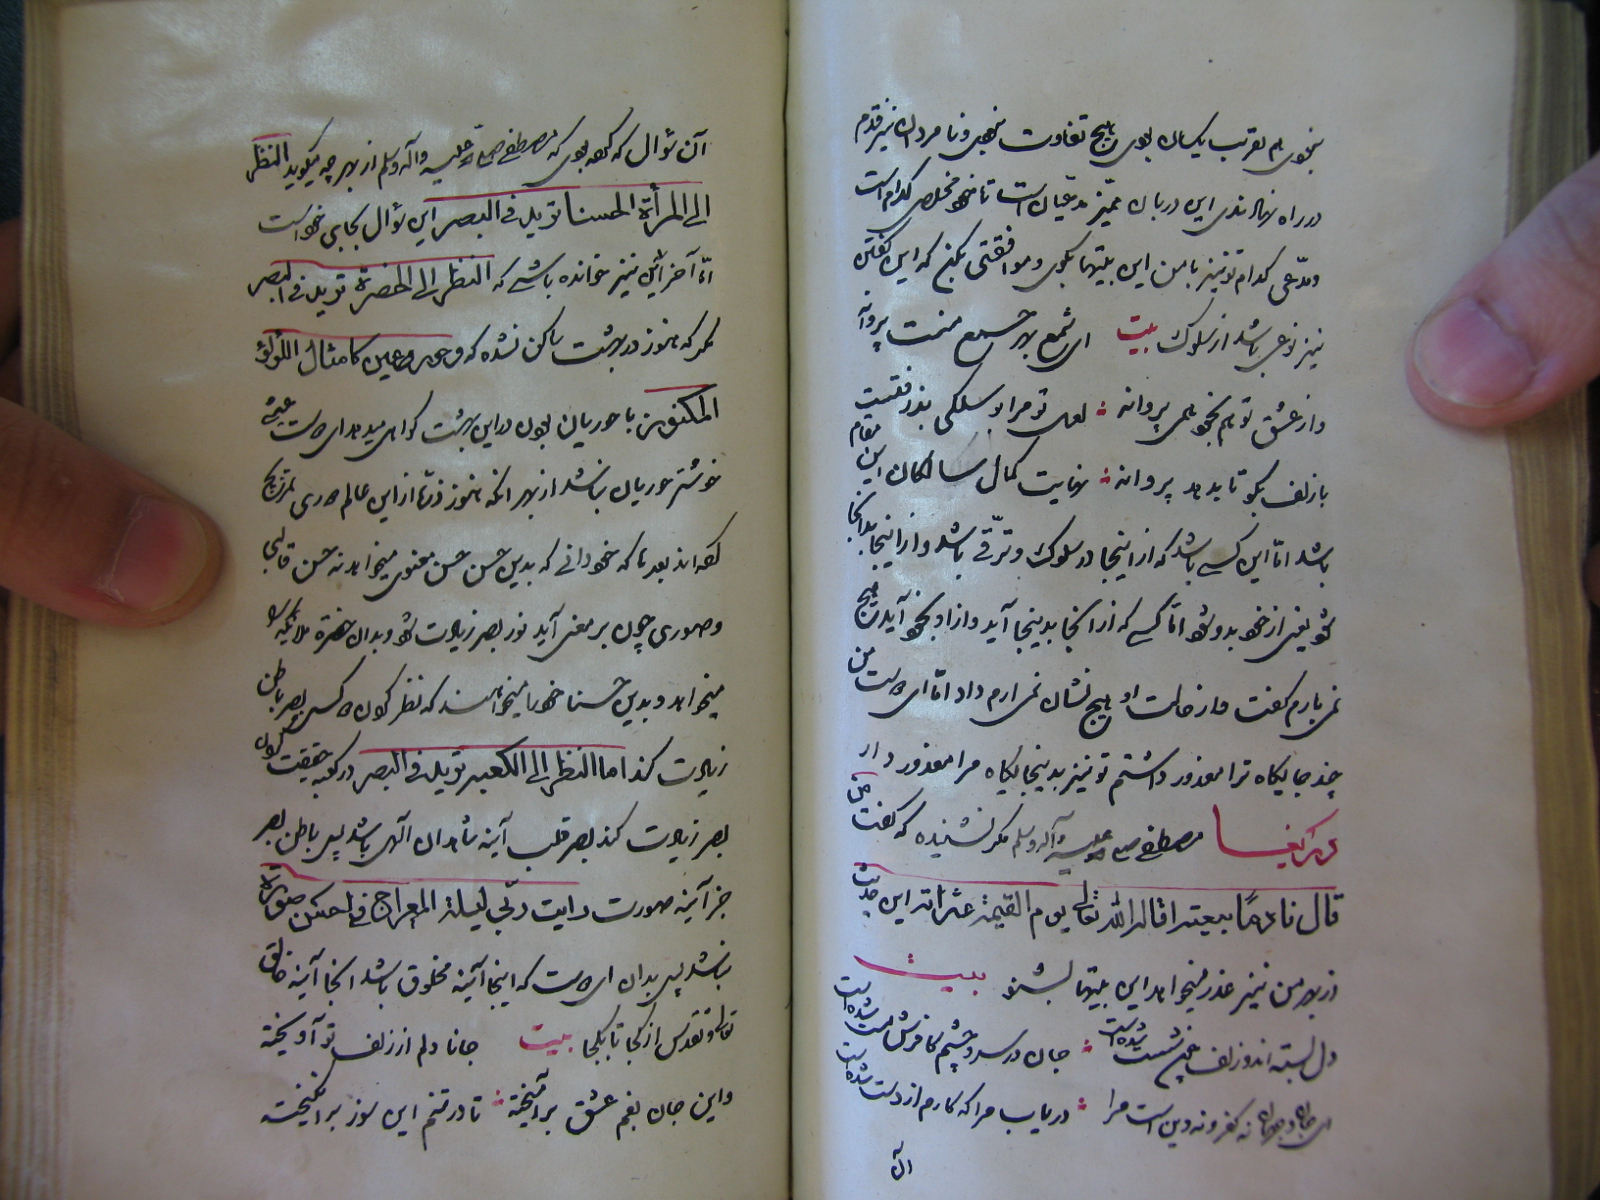 بخودی هم بقرب یکسان بودی هیچ تفاوت نبودی و نامردان نیز قدم
در راه نهادندی این دربان ممیز مدعیان است تا خود مخلص کدام است
و مدعی کدام تو نیز با من این بیتها بگوی و موافقتی بکن که این گفتن
نیز نوعی باشد از سلوک بیت ای شمع بهر جمع منت پروانه
وز عشق تو هم بخود همی پروا نه لعل تو مرا بوسلکی
با زلف بگو تا بدهد پروانه نهایت کمال سالکان این مقام
باشد اما این کسی باشد که از اینجا در سلوک و ترقی باشد و از اینجا بدانجا
شود یعنی از خود بدو شود اما کسی که از آنجا بدینجا آید و از او بخود آید هیچ
نمی یارم گفت و از حالت او هیچ نشان نمی آرم داد اما ای دوست من
چند جایگاه ترا معذور داشتم تو نیز بدینجایگاه مرا معذور دار
مصطفی صلی الله علیه و آله و سلم مگر نشنیده که گفت من
قال نادمًا بیعته اقاله الله تعالی یوم القیمة عثراته این حدیث
از بهر من نیز عذر میخواهد این بیتها بشنو بیت
دل بسته اندوز لف چین شست شده است جان در سر دو چشم کافرش مست شده است
ای جان و جهان نه کفر و نه دین است مرا دریاب مرا که کارم از دست شده است
آن
آن سؤال که کرده بودی که مصطفی صلی الله علیه و آله و سلم از بهر چه میگوید النظر
الی المرأة الحسنا تزید فی البصر این سؤال بجایی خود است
اما آخر این نیز خوانده باشی که النظر الی الخضرة تزید فی البصر
مگر که هنوز در بهشت ساکن نشده که و حور عین کامثال اللؤلؤ
المکنون با حوریان بودن در این بهشت گواهی میدهد ای دوست
خوشتر حوریان نباشد از بهر آنکه هنوز ذرّتا از این عالم صوری
کرده اند بعد ما که خود دانی که بدین حسن حسن معنوی میخواهد نه حسن قالبی
و صوری چون بر معنی آید نور بصر زیادت شود و بدان خضرة ملائیکه را
میخواهد و بدین حسنا خود را میخواهند که نظر کردن در کسی بصر باطن
زیادت کند اما النظر الی الکعبه تزید فی البصر در کعبه حقیقت کردن
بصر زیادت کند بصر قلب آینه شاهدان الهی باشد پس باطن بصر
جز آینه صورت رایت ربّی لیلة المعراج فی احسن صورة
نباشد پس بدان ای دوست که اینجا آینه مخلوق باشد آنجا آینه خالق
تعالی و تقدس از کجا تا بکجا بیت جانا دلم از زلف تو آویخته
واین جان بغم عشق برآمیخته تا در تنم این سوز برانگیخته